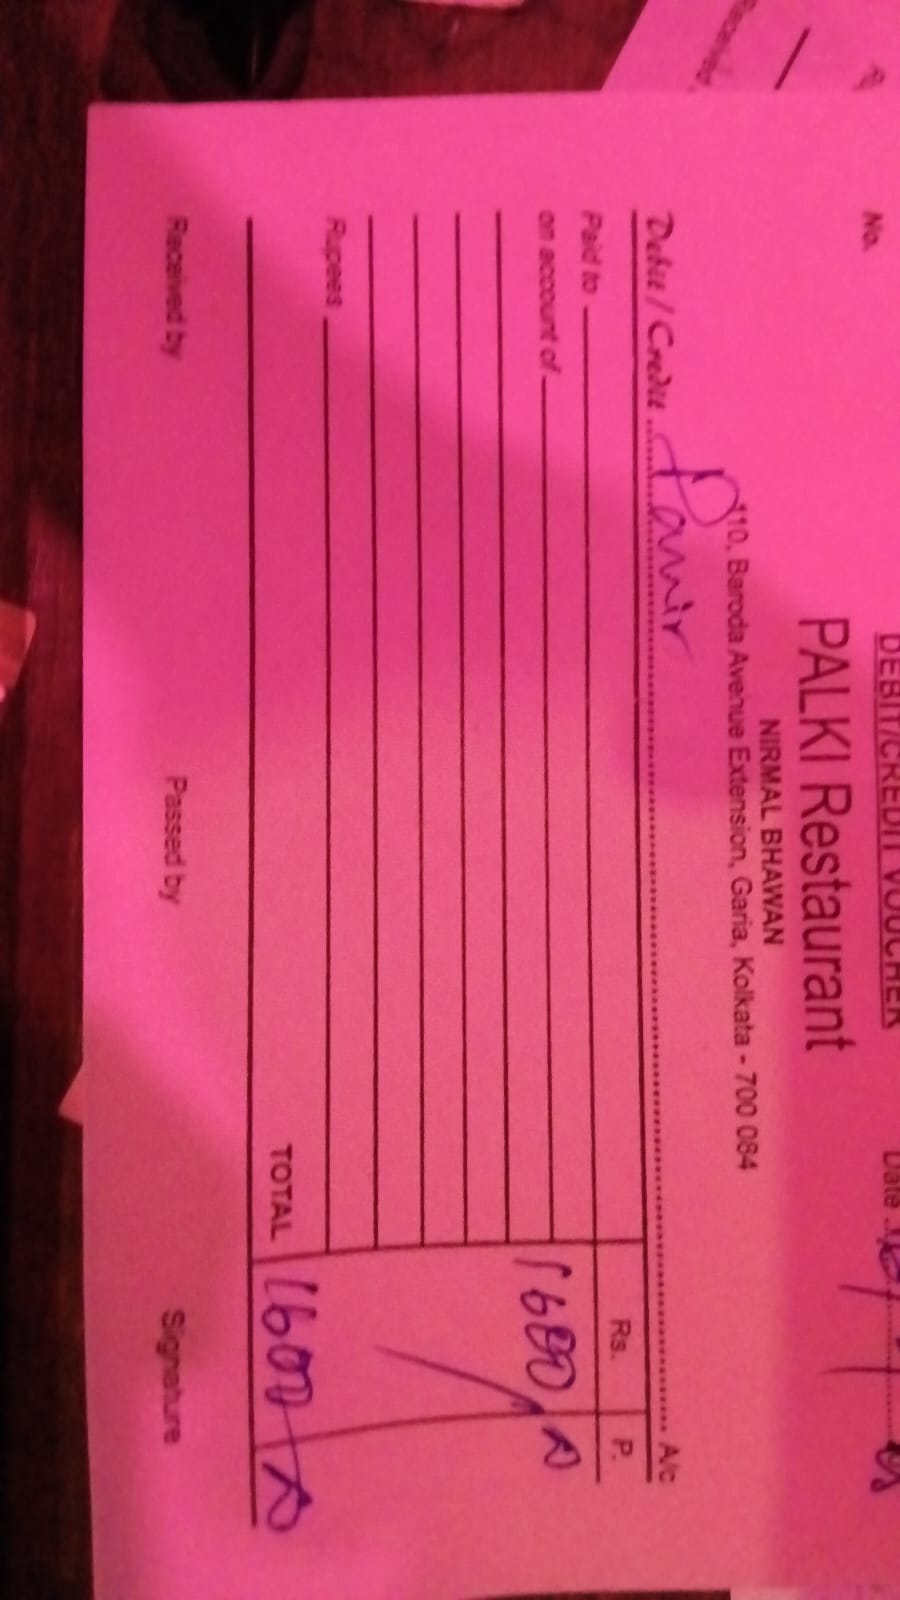 DEBIT/CREDIT VOUCHER
No.
Date
PALKI Restaurant
NIRMAL BHAWAN
110, Baroda Avenue Extension, Garia, Kolkata - 700 084
Debit / Credit Panir A/c
Paid to Rs. P.
on account of 1600/
Rupees
TOTAL 1600
Received by Passed by Signature